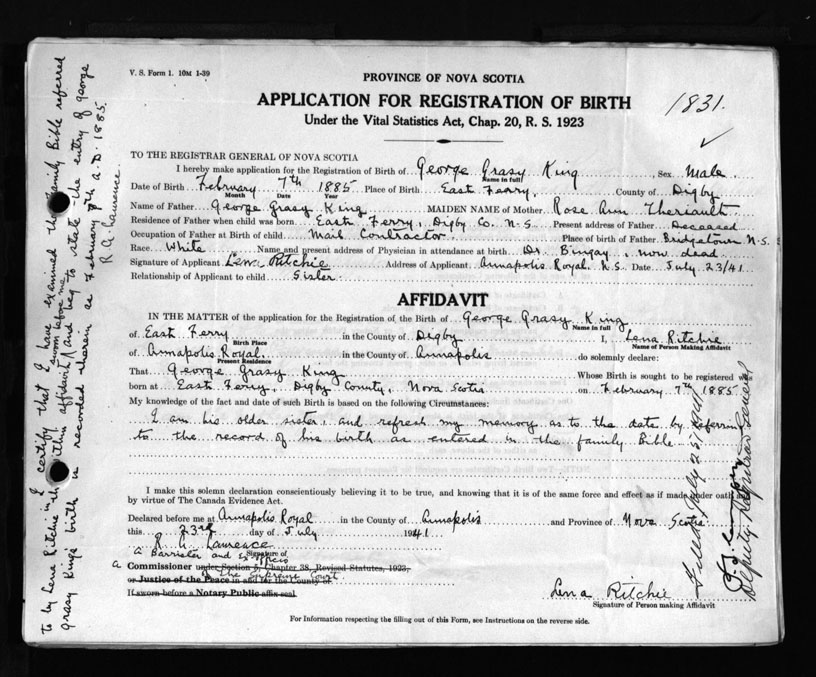 V. S. Form 1. 10M 1-39
PROVINCE OF NOVA SCOTIA
APPLICATION FOR REGISTRATION OF BIRTH
Under the Vital Statistics Act, Chap. 20, R. S. 1923
1831.
TO THE REGISTRAR GENERAL OF NOVA SCOTIA
I hereby make application for the Registration of Birth of George Grasy King, Sex Male
Name in full
Date of Birth February 7th 1885 Place of Birth East Ferry, County of Digby
Month Date Year
Name of Father George Grasy King MAIDEN NAME of Mother Rose Ann Theriault
Residence of Father when child was born East Ferry, Digby Co. N.S. Present address of Father Deceased
Occupation of Father at Birth of child Mail Contractor Place of birth of Father Bridgetown N.S.
Race White Name and present address of Physician in attendance at birth Dr. Bingay, now dead
Signature of Applicant Lena Ritchie Address of Applicant Annapolis Royal. N.S. Date July 23/41
Relationship of Applicant to child Sister
AFFIDAVIT
IN THE MATTER of the application for the Registration of the Birth of George Grasy King
Name in full
of East Ferry in the County of Digby I, Lena Ritchie
Birth Place Name of Person Making Affidavit
of Annapolis Royal. in the County of Annapolis do solemnly declare:
Present Residence
That George Grasy King Whose Birth is sought to be registered was
born at East Ferry, Digby County, Nova Scotia on February 7th 1885
My knowledge of the fact and date of such Birth is based on the following Circumstances:
I am his older sister, and refresh my memory as to the date by referring
to the record of his birth as entered in the family Bible
I make this solemn declaration conscientiously believing it to be true, and knowing that it is of the same force and effect as if made under oath and
by virtue of The Canada Evidence Act.
Declared before me at Annapolis Royal in the County of Annapolis and Province of Nova Scotia
this 23rd day of July 1941
R G Laurence
Signature of
a Barrister and ex officio
a Commissioner under Section 5, Chapter 38, Revised Statutes, 1923,
of the Supreme Court
or Justice of the Peace in and for the County of
If sworn before a Notary Public affix seal
Lena Ritchie
Signature of Person making Affidavit
For Information respecting the filling out of this Form, see Instructions on the reverse side.
I certify that I have examined the family Bible referred
to by Lena Ritchie in the within affidavit sworn before me and beg to state the entry of George
Grasy King's birth is recorded therein as February 7th A.D. 1885.
R G Laurence.
Filed July 25, 1941
Deputy Registrar General